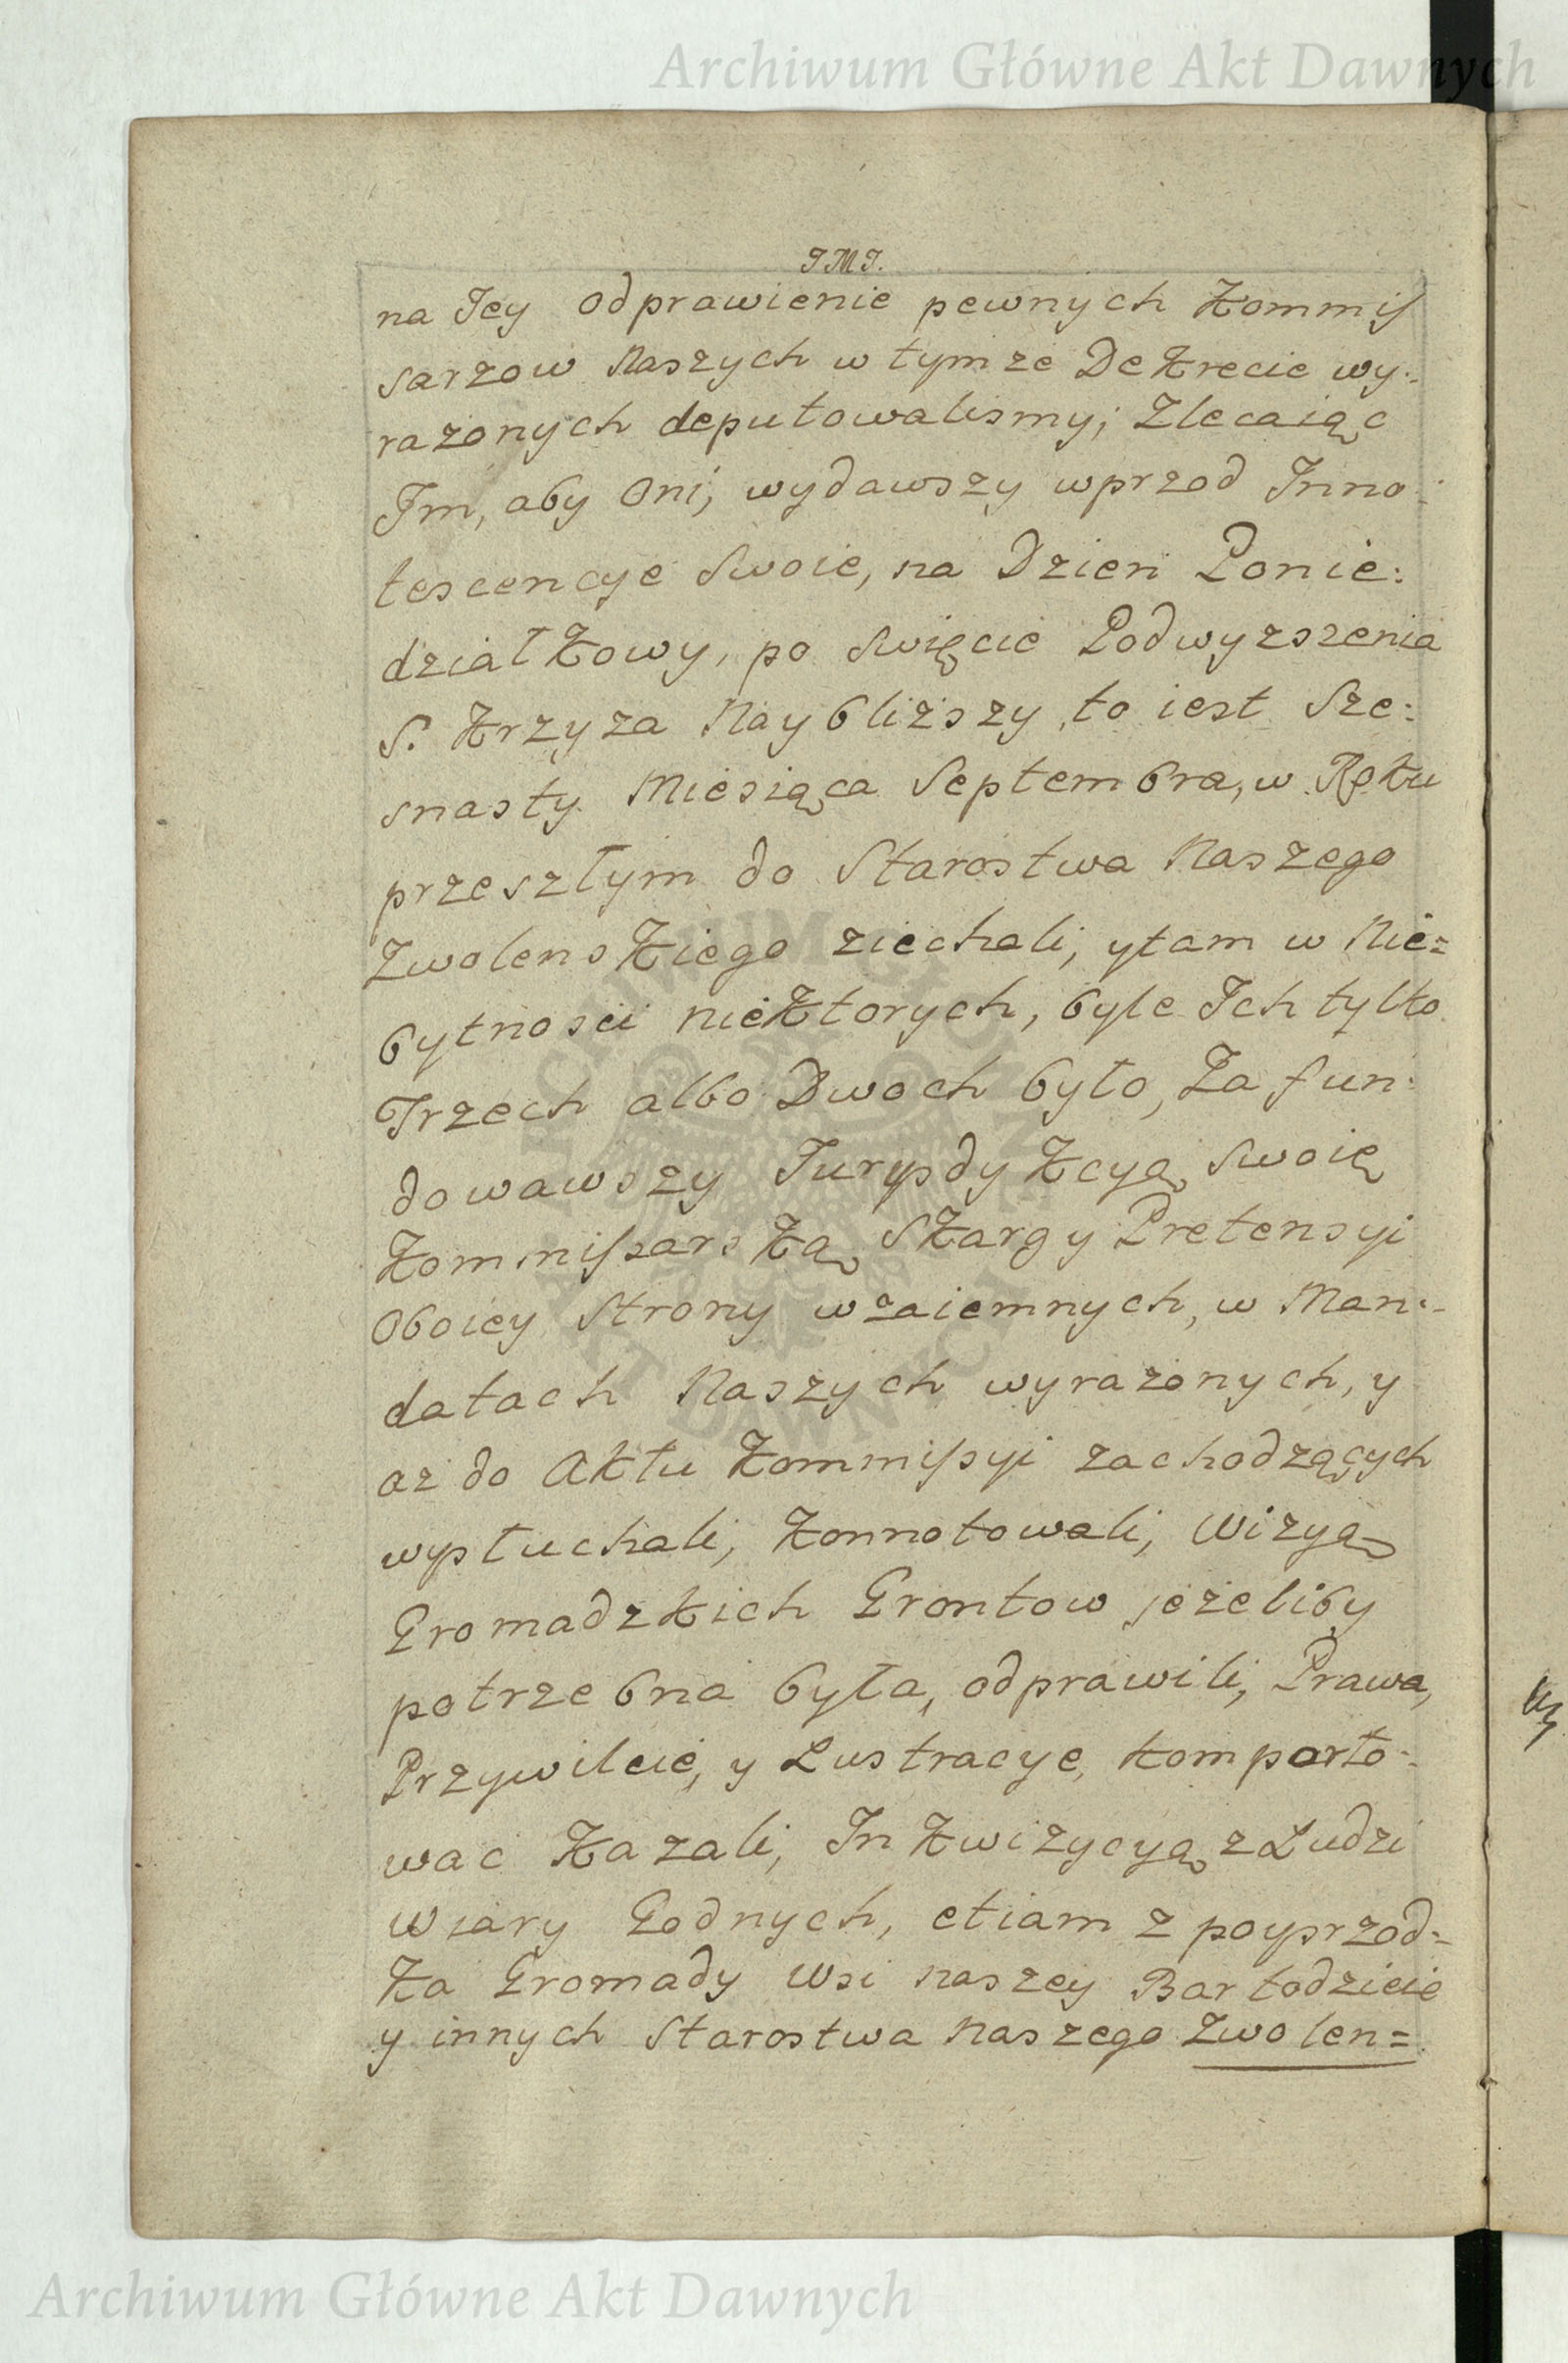 Archiwum Główne Akt Dawnych
JMJ.
na Jey odprawienie pewnych Kommiſ
sarzow Naszych w tymze Dekrecie wy:
razonych deputowalismy; Zlecaiąc
Jm, aby Oni, wydawszy wprzod Inno:
tescencye Swoie, na Dzien Ponie:
działkowy, po Swięcie Podwyzszenia
S. Krzyza Naybliższy, to iest Sze:
snasty Miesiąca Septembra, w Roku
przeszłym do Starostwa Naszego
Zwolenskiego ziechali, ytam w Nie=
bytnosci niektorych, byle Ich tylko
Trzech albo Dwoch było, Zafun:
dowawszy Jurysdykcyą Swoię
Kommiſsarską, Skargy Pretensyi
Oboiey Strony wzaiemnych, w Man:
datach Naszych wyrażonych, y
aż do Aktu Kommiſsyi zachodzących
wysłuchali, Konnotowali, Wizyą
Gromadzkich Grontow jeżeliby
potrzebna była, odprawili, Prawa,
Przywileie, y Lustracye, komporto:
wac Kazali, Inkwizycyą z Ludzi
Wiary Godnych, etiam z poysrzod=
ka Gromady Wsi naszey Bartodzieie
y innych Starostwa Naszego Zwolen=
Archiwum Główne Akt Dawnych